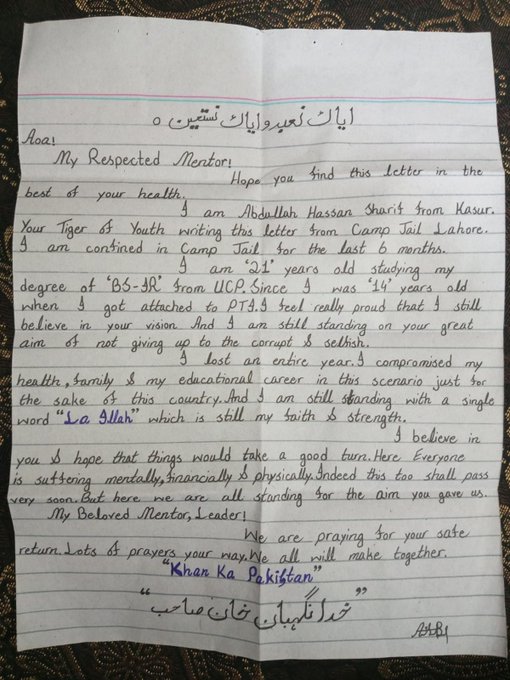 اياك نعبد و اياك نستعين ο
Aoa!
My Respected Mentor!
Hope you find this letter in the
best of your health.
I am Abdullah Hassan Sharif from Kasur.
Your Tiger of Youth writing this letter from Camp Jail Lahore.
I am confined in Camp Jail for the last 6 months.
I am '21' years old studying my
degree of 'BS-IR' from UCP. Since I was '14' years old
when I got attached to PTI. I feel really proud that I still
believe in your vision And I am still standing on your great
aim of not giving up to the corrupt & selfish.
I lost an entire year. I compromised my
health, family & my educational career in this scenario just for
the sake of this country. And I am still standing with a single
word "La Illah" which is still my faith & strength.
I believe in
you & hope that things would take a good turn. Here Everyone
is suffering mentally, financially & physically. Indeed this too shall pass
very soon. But here we are all standing for the aim you gave us.
My Beloved Mentor, Leader!
We are praying for your safe
return. Lots of prayers your way. We all will make together.
"Khan Ka Pakistan"
"خدا نگہبان خان صاحب"